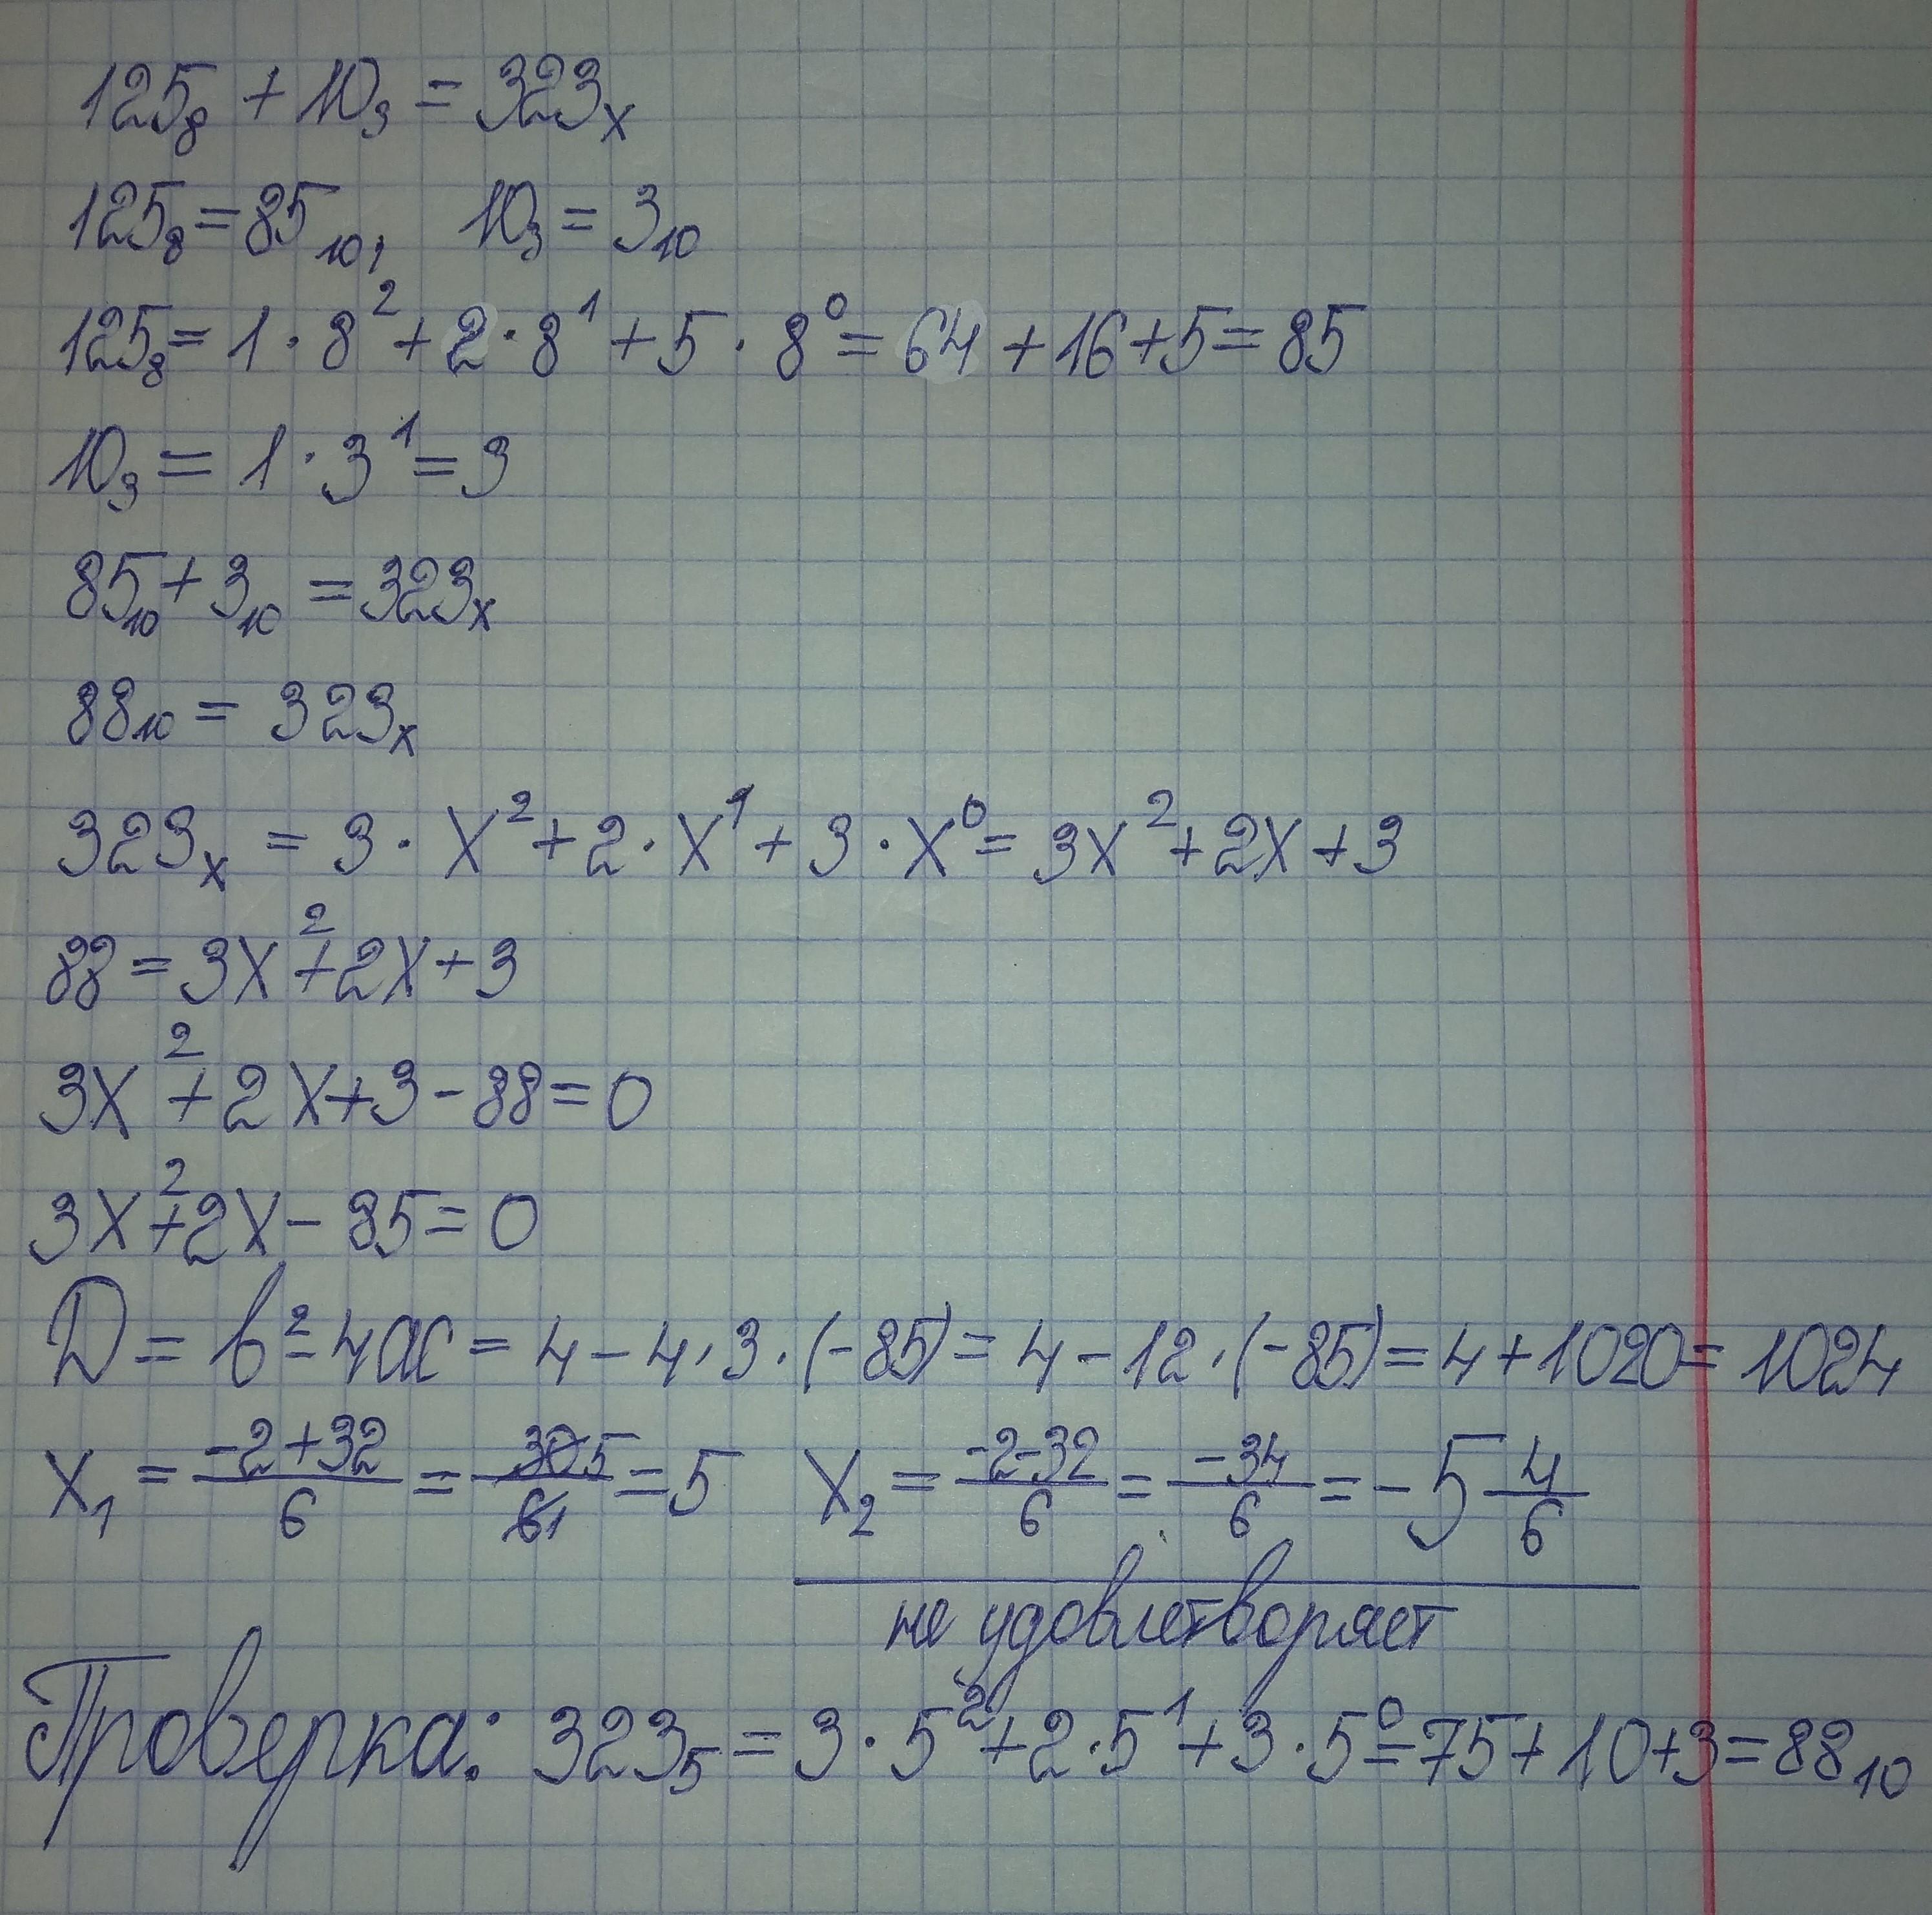 125₈ + 10₃ = 323ₓ
125₈ = 85₁₀, 10₃ = 3₁₀
125₈ = 1 · 8² + 2 · 8¹ + 5 · 8⁰ = 64 + 16 + 5 = 85
10₃ = 1 · 3¹ = 3
85₁₀ + 3₁₀ = 323ₓ
88₁₀ = 323ₓ
323ₓ = 3 · x² + 2 · x¹ + 3 · x⁰ = 3x² + 2x + 3
88 = 3x² + 2x + 3
3x² + 2x + 3 - 88 = 0
3x² + 2x - 85 = 0
D = b² - 4ac = 4 - 4 · 3 · (-85) = 4 - 12 · (-85) = 4 + 1020 = 1024
x₁ = (-2+32)/6 = 30 5/6 1 = 5 x₂ = (-2-32)/6 = -34/6 = -5 4/6
не удовлетворяет
Проверка: 323₅ = 3 · 5² + 2 · 5¹ + 3 · 5⁰ = 75 + 10 + 3 = 88₁₀